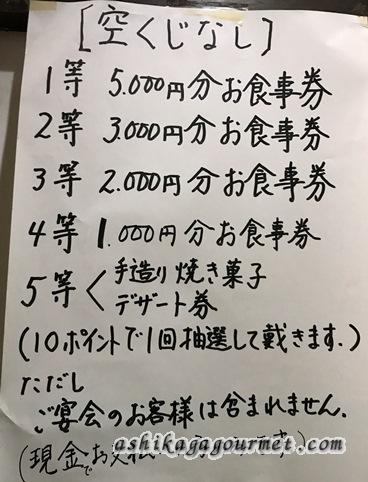 [空くじなし]
1等 5.000円分お食事券
2等 3.000円分お食事券
3等 2.000円分お食事券
4等 1.000円分お食事券
5等〈手造り焼き菓子
デザート券
(10ポイントで1回抽選して戴きます.)
ただし
ご宴会のお客様は含まれません.
(現金でお支払
ashikagagourmet.com